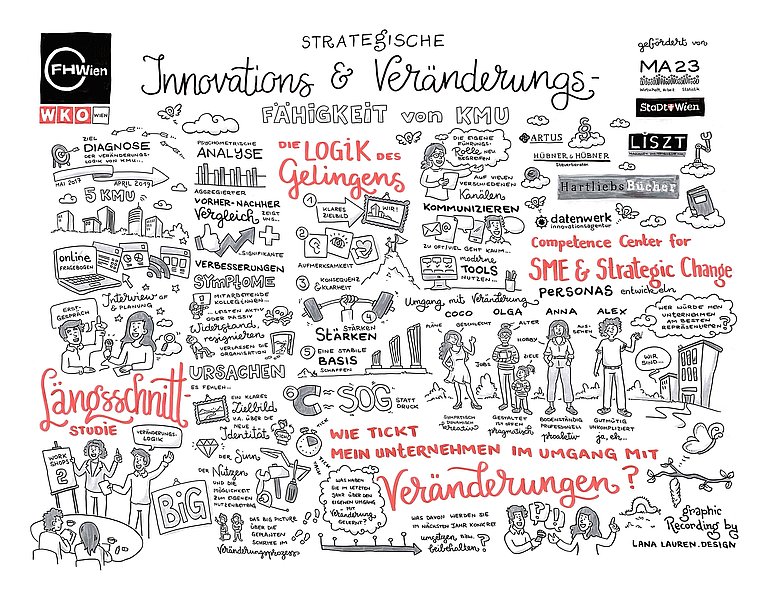 FHWien
WKO WIEN
STRATEGISCHE
Innovations & Veränderungs-
FÄHIGKEIT von KMU
gefördert von
MA 23
Wirtschaft, Arbeit Statistik
StaDt Wien
LiSZT
ARTUS
HÜBNER & HÜBNER
Steuerberater
HartliebsBücher
datenwerk
innovationsagentur
Competence Center for
SME & Strategic Change
ZIEL
DIAGNOSE
DER VERÄNDERUNGS-
LOGIK VON KMU...
MAI 2017
APRIL 2019
5 KMU
online
FRAGEBOGEN
Interview
& PLANUNG
ERST-
GESPRÄCH
Längsschnitt-
STUDIE
WORK
SHOPS
2
VERÄNDERUNGS-
LOGIK
BiG
PSYCHOMETRISCHE
ANALYSE
AGGREGIERTER
VORHER-NACHHER
Vergleich
ZEIGT
UNS...
...SIGNIFIKANTE
VERBESSERUNGEN
SYMPTOME
MITARBEITENDE
KOLLEG:INNEN...
...LEISTEN AKTIV
ODER PASSIV
Widerstand,
resignieren
VERLASSEN DIE
ORGANISATION
URSACHEN
ES FEHLEN...
EIN KLARES
Zielbild
V.A. ÜBER DIE
NEUE
Identität
DER Sinn
DER Nutzen
UND DIE
MÖGLICHKEIT
ZUM EIGENEN
NUTZENBEITRAG
DAS BIG PICTURE
ÜBER DIE
GEPLANTEN
SCHRITTE IM
Veränderungsprozess
DIE LOGIK DES
Gelingens
1 KLARES
ZIELBILD
WIR!
2
AUFMERKSAMKEIT
3 KONSEQUENZ
& KLARHEIT
4
STÄRKEN
Stärken
5 EINE STABILE
BASIS
SCHAFFEN
6 SOG STATT
DRUCK
TICK
TICK
DIE EIGENE
FÜHRUNGS-
Rolle NEU
BEGREIFEN
AUF VIELEN
VERSCHIEDENEN
Kanälen
KOMMUNIZIEREN
ZU OFT/VIEL GEHT KAUM...
moderne
TOOLS
NUTZEN...
Umgang mit Veränderung
PERSONAS entwickeln
COCO
OLGA
ANNA
ALEX
PLÄNE
GESCHLECHT
ALTER
HOBBY
ZIELE
JOBS
AUS-
SEHEN
SYMPATHISCH
DYNAMISCH
kreativ
GESTALTET
IST OFFEN
pragmatisch
BODENSTÄNDIG
PROFESSIONELL
proaktiv
GUTMÜTIG
UNKOMPLIZIERT
ja, ok...
WER WÜRDE MEIN
UNTERNEHMEN
AM BESTEN
REPRÄSENTIEREN?
WIR
SIND...
WIE TICKT
MEIN UNTERNEHMEN IM UMGANG MIT
Veränderungen?
WAS HABEN
SIE IM LETZTEN
JAHR ÜBER DEN
EIGENEN UMGANG
MIT
Veränderung
GELERNT?
WAS DAVON WERDEN SIE
IM NÄCHSTEN JAHR KONKRET
umsetzen bzw.
beibehalten?
?!
graphic
Recording by
LANA LAUREN.DESIGN